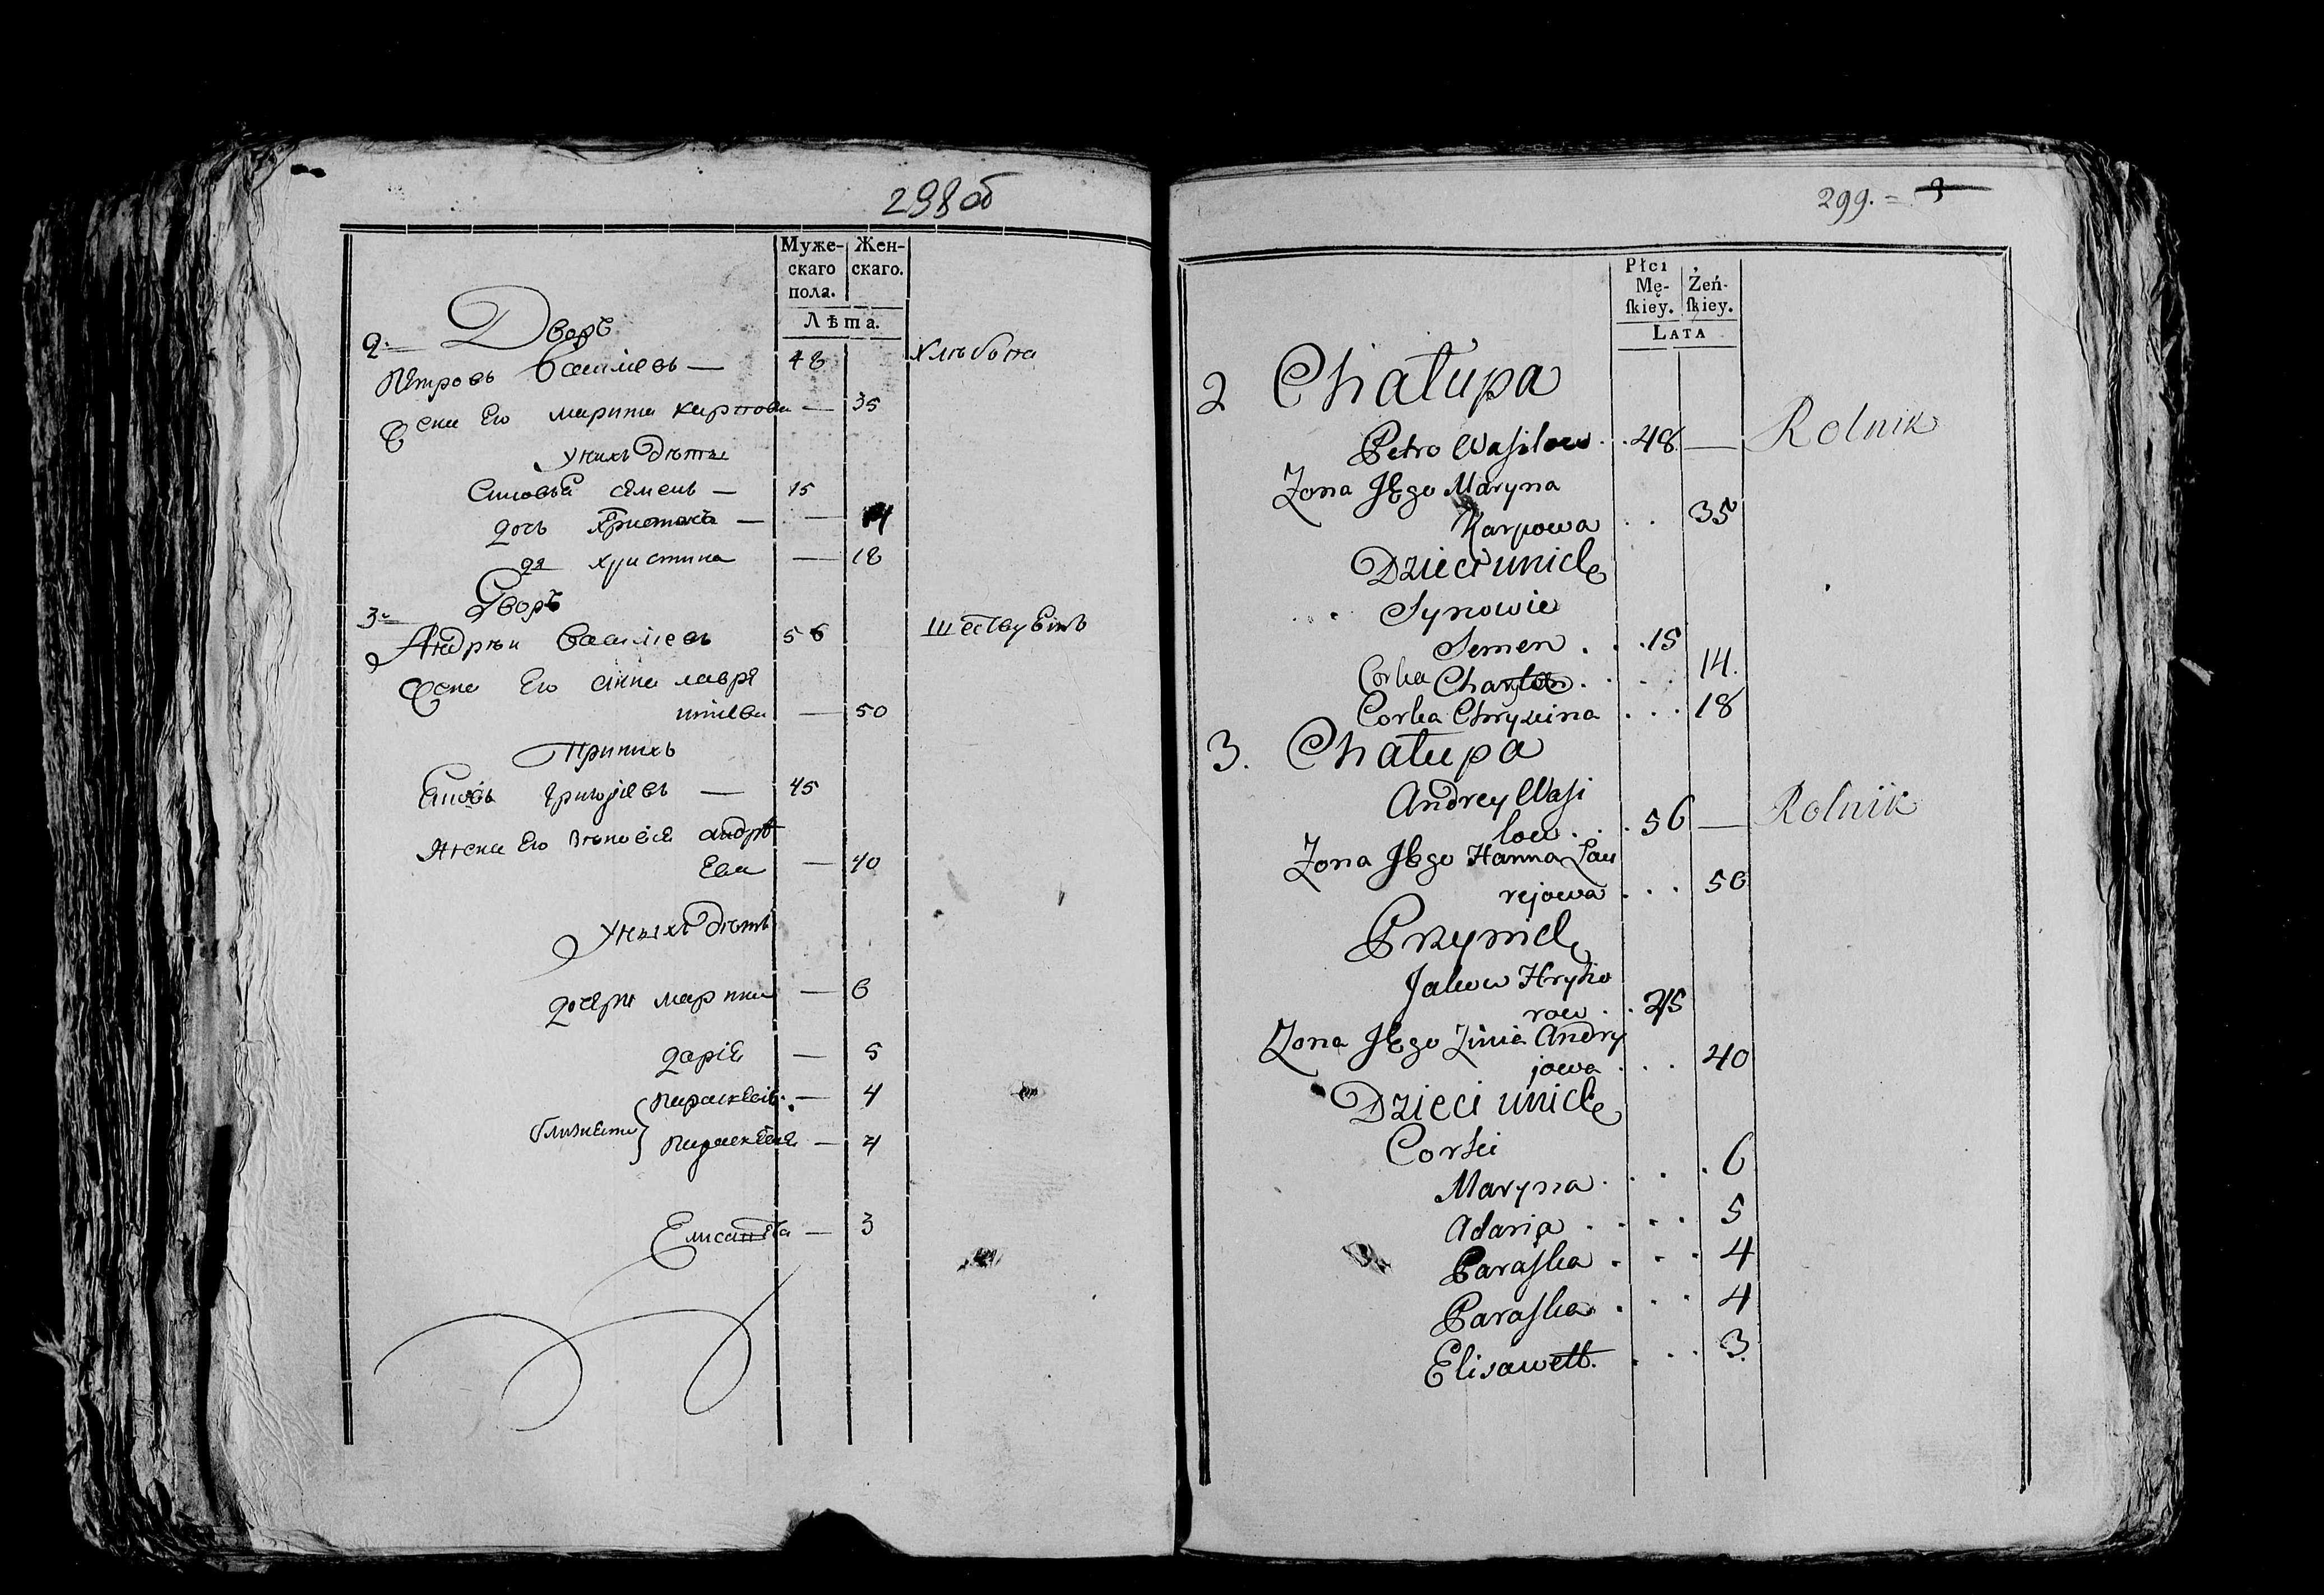 298 об
Муже- Жен-
скаго скаго.
пола.
Лѣта.
2. Дворъ
Петровъ Василіевъ — 48
Жена Его марина карпова — 35
У нихъ дѣти
Сыновья семенъ — 15
дочь — 14
до христина — 18
3. Дворъ
Андрѣй Василіевъ 56
Жена Его анна лавре
нтіева — 50
При нихъ
Григоріевъ — 45
Жена Его Зѣновія андрѣ
Ева — 40
У нихъ дѣти
дочери марина — 6
дарія — 5
параскевія — 4
близнета параскевія — 4
Елисавета — 3
299. = 3
Płci
Mę- Żeń-
ſkiey. ſkiey.
LATA
2 Chałupa
Petro Wasilow . . 48 — Rolnik
Zona Jego Maryna
Karpowa . . 35
Dzieci unich
Synowie
Semen . . . 15
Corka . . . 14.
Corka Chrystina . . . 18
3. Chałupa
Andrey Wasi
low . . . 56 — Rolnik
Zona Jego Hanna Law
rejowa . . . 50
Przynich
Jakow Hryho
row . . 45
Zona Jego Zinia Andry
jowa . . . 40
Dzieci unich
Corki
Maryna . . . . 6
Adaria . . . . 5
Paraska . . . 4
Paraska . . . 4
Elisawett. . . . 3.